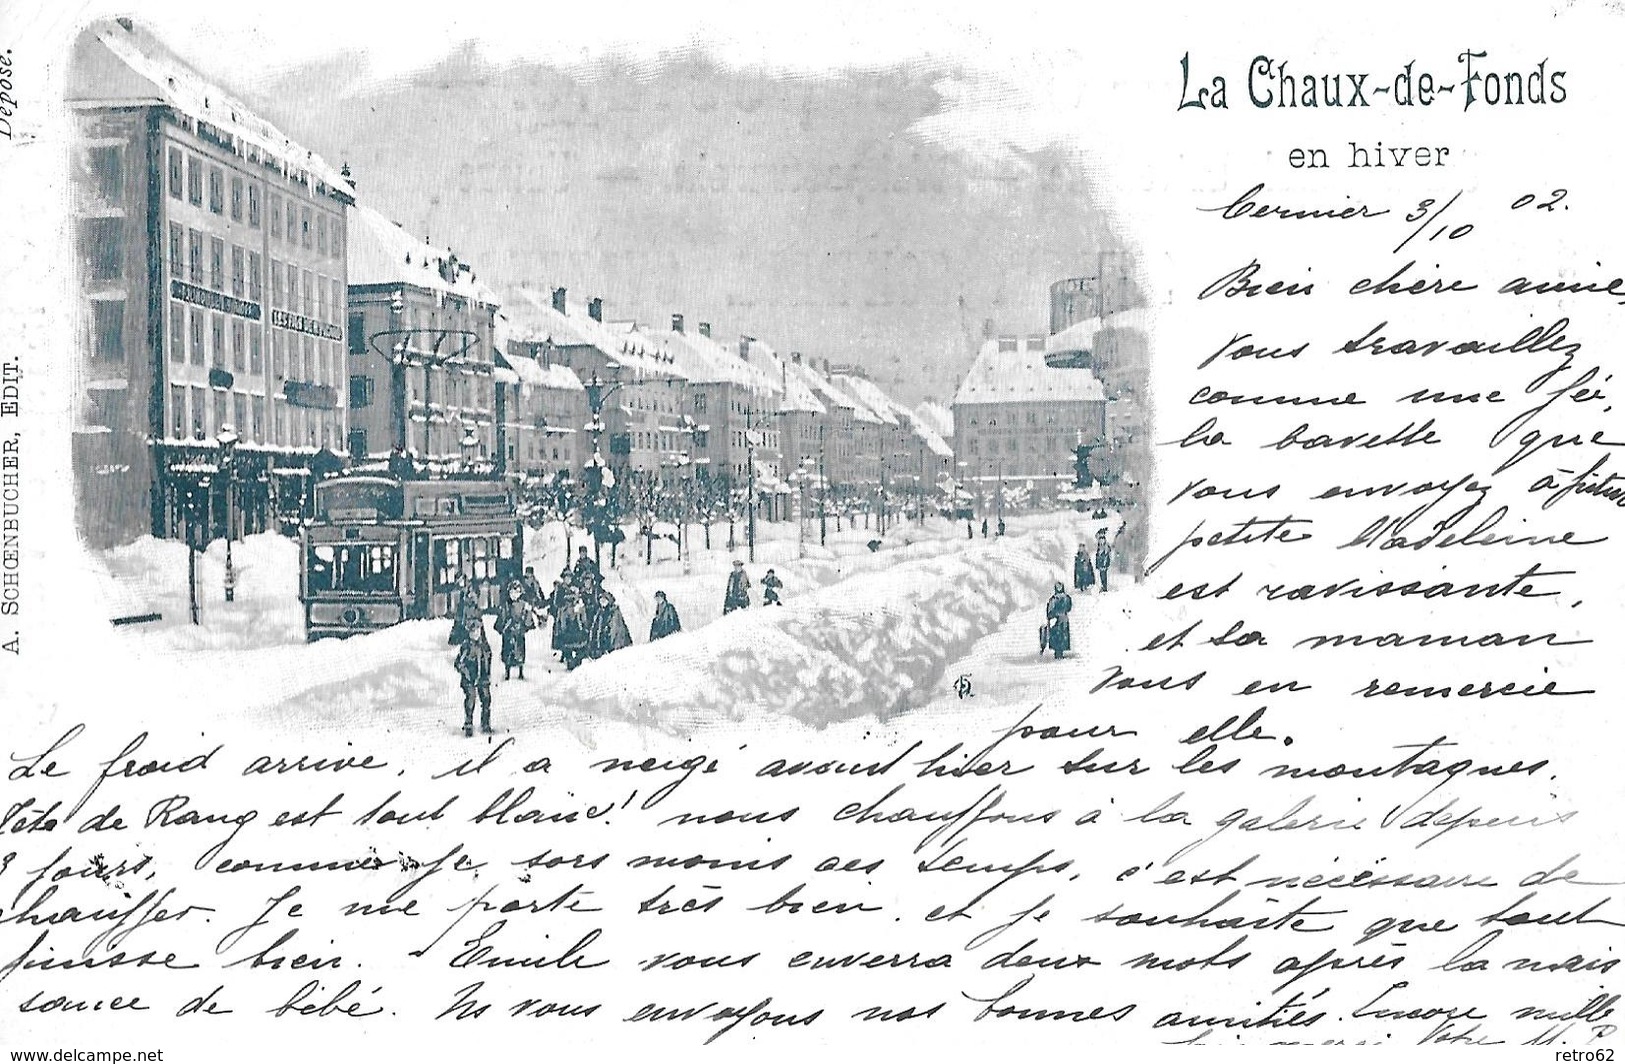 La Chaux-de-Fonds
en hiver
Déposé.
A. SCHŒNBUCHER, EDIT.
Cernier 3/10 02.
Bien chère amie,
Vous travaillez
comme une fée,
la bavette que
vous envoyez à future
petite Madeleine
est ravissante,
et sa maman
vous en remercie
pour elle.
Le froid arrive, il a neigé avant hier sur les montagnes.
Tête de Rang est tout blanc! nous chauffons à la galerie depuis
3 jours, comme je sors moins ces temps, c'est nécessaire de
chauffer. Je me porte très bien, et je souhaite que tout
puisse bien. Emile vous enverra deux mots après la nais
sance de bébé. Ns vous envoyons nos bonnes amitiés. Encore mille
merci Votre M. P
https://www.delcampe.net
retro62